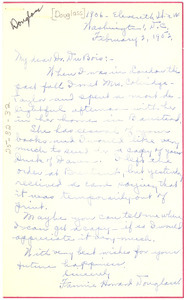 Douglass
[Douglass]
1906 - Eleventh St. N.W.
Washington, D.C.
February 3, 1932
My dear Dr. Du Bois:-
When I was in London the
past fall I met Mrs. Coleridge-
Taylor and spent a most de-
lightful afternoon with her
in her home in
She has several of your
books, and would like very
much to have a copy of your
I left an
order at Brentano's, but yesterday
received
it was temporarily out of
print.
Maybe you can tell me where
I can get a copy - if so I would
appreciate it very much.
With very best wishes for your
future happiness
Sincerely,
Fannie Howard Douglass